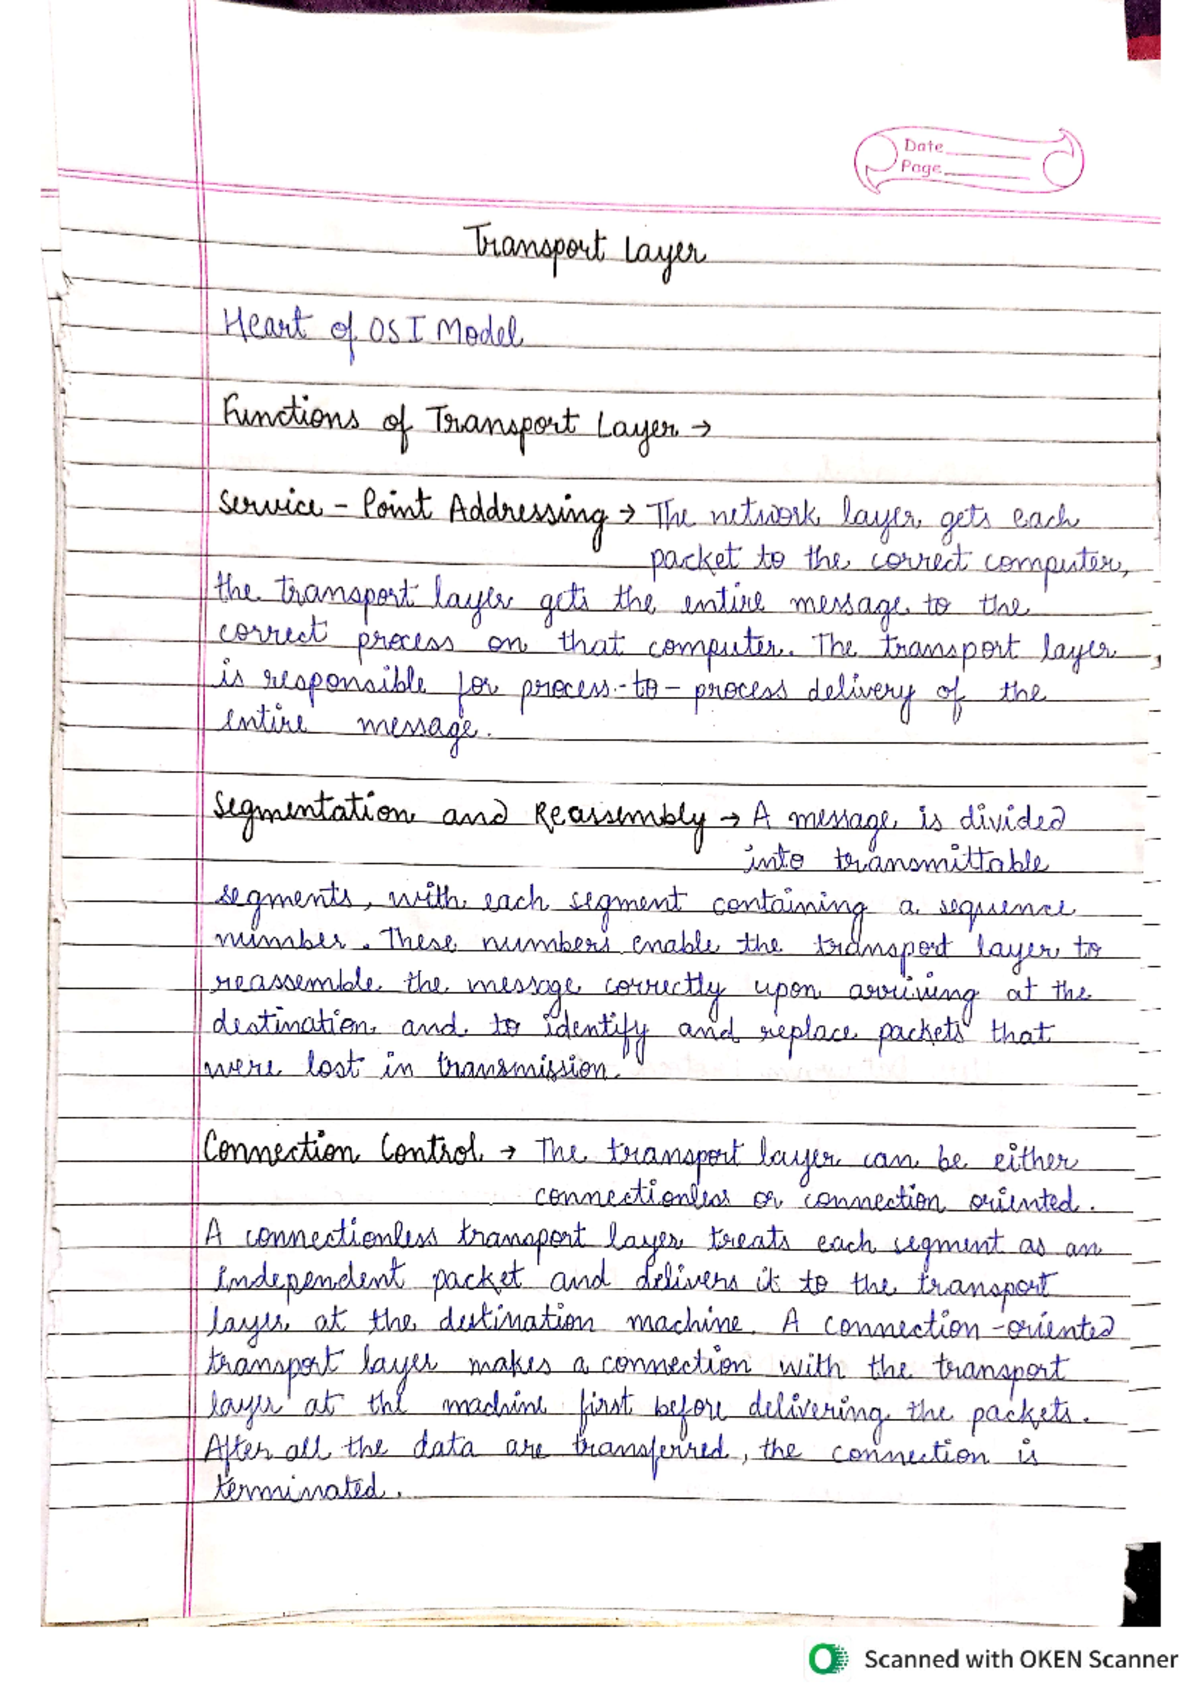 Date
Page
Transport Layer
Heart of OSI Model
Functions of Transport Layer →
Service - Point Addressing → The network layer gets each
packet to the correct computer,
the transport layer gets the entire message to the
correct process on that computer. The transport layer
is responsible for process-to-process delivery of the
entire message.
Segmentation and Reassembly → A message is divided
into transmittable
segments, with each segment containing a sequence
number. These numbers enable the transport layer to
reassemble the message correctly upon arriving at the
destination and to identify and replace packets that
were lost in transmission.
Connection Control → The transport layer can be either
connectionless or connection oriented.
A connectionless transport layer treats each segment as an
independent packet and delivers it to the transport
layer at the destination machine. A connection-oriented
transport layer makes a connection with the transport
layer at the machine first before delivering the packets.
After all the data are transferred, the connection is
terminated.
Scanned with OKEN Scanner